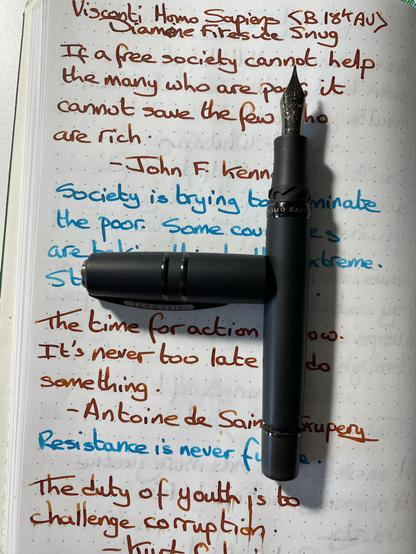 Visconti Homo Sapiens <B 18k AU>
Diamine Fireside Snug
If a free society cannot help
the many who are poor it
cannot save the few who
are rich.
- John F. Kenn
Society is trying to
the poor. Some
are
The time for action
It's never too late do
something.
- Antoine de Saint Exupery
Resistance is never
The duty of youth is to
challenge corruption.
- Kurt
HOMO SAP
VISCONTI